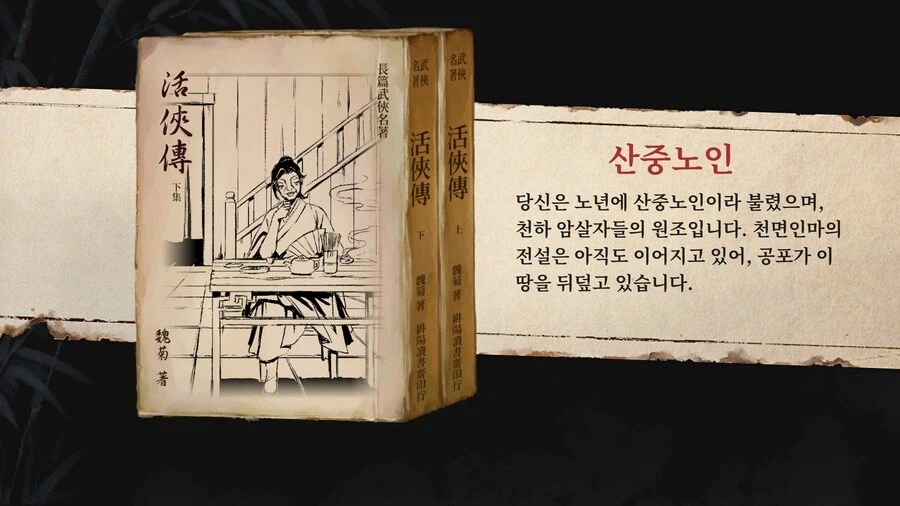 活俠傳
下集
魏菊 著
長篇武俠名著
武俠名著
活俠傳
下
魏菊 著
武俠名著
活俠傳
上
魏菊 著
산중노인
당신은 노년에 산중노인이라 불렸으며,
천하 암살자들의 원조입니다. 천면인마의
전설은 아직도 이어지고 있어, 공포가 이
땅을 뒤덮고 있습니다.